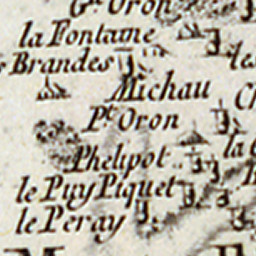 Gd. Oron
la Fontaine
Brandes
Michau
Pt. Oron
Phelipot
le Puy Piquet
le Peray